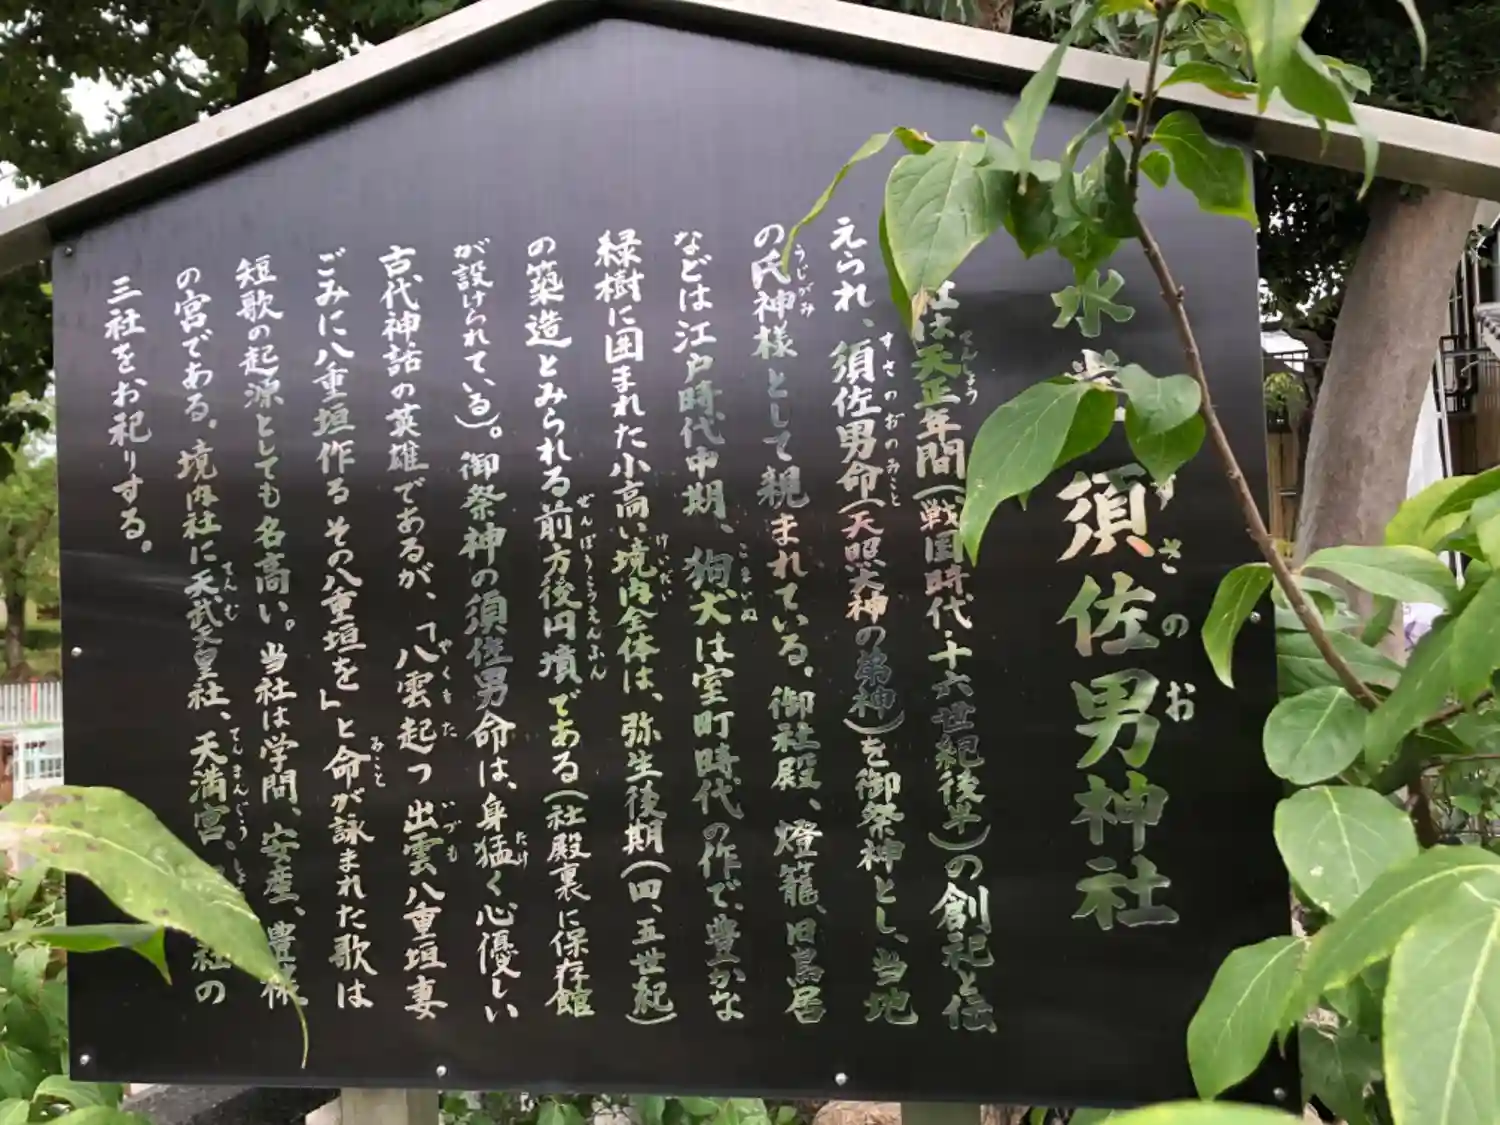 水 須佐男神社
すさのお
社は天正年間(戦国時代・十六世紀後半)の創祀と伝
てんしょう
えられ、須佐男命(天照大神の弟神)を御祭神とし、当地
すさのおのみこと
の氏神様として親まれている。御社殿、燈籠、旧鳥居
うじがみ
などは江戸時代中期、狛犬は室町時代の作で、豊かな
こまいぬ
緑樹に囲まれた小高い境内全体は、弥生後期(四、五世紀)
けいだい
の築造とみられる前方後円墳である(社殿裏に保存館
ぜんぽうこうえんふん
が設けられている)。御祭神の須佐男命は、身猛く心優しい
たけ
古代神話の英雄であるが、「八雲起つ出雲八重垣妻
やくもた いづも
ごみに八重垣作るその八重垣を」と命が詠まれた歌は
みこと
短歌の起源としても名高い。当社は学問、安産、豊穣
の宮である。境内社に天武天皇社、天満宮、 社の
てんむ てんまんぐう
三社をお祀りする。